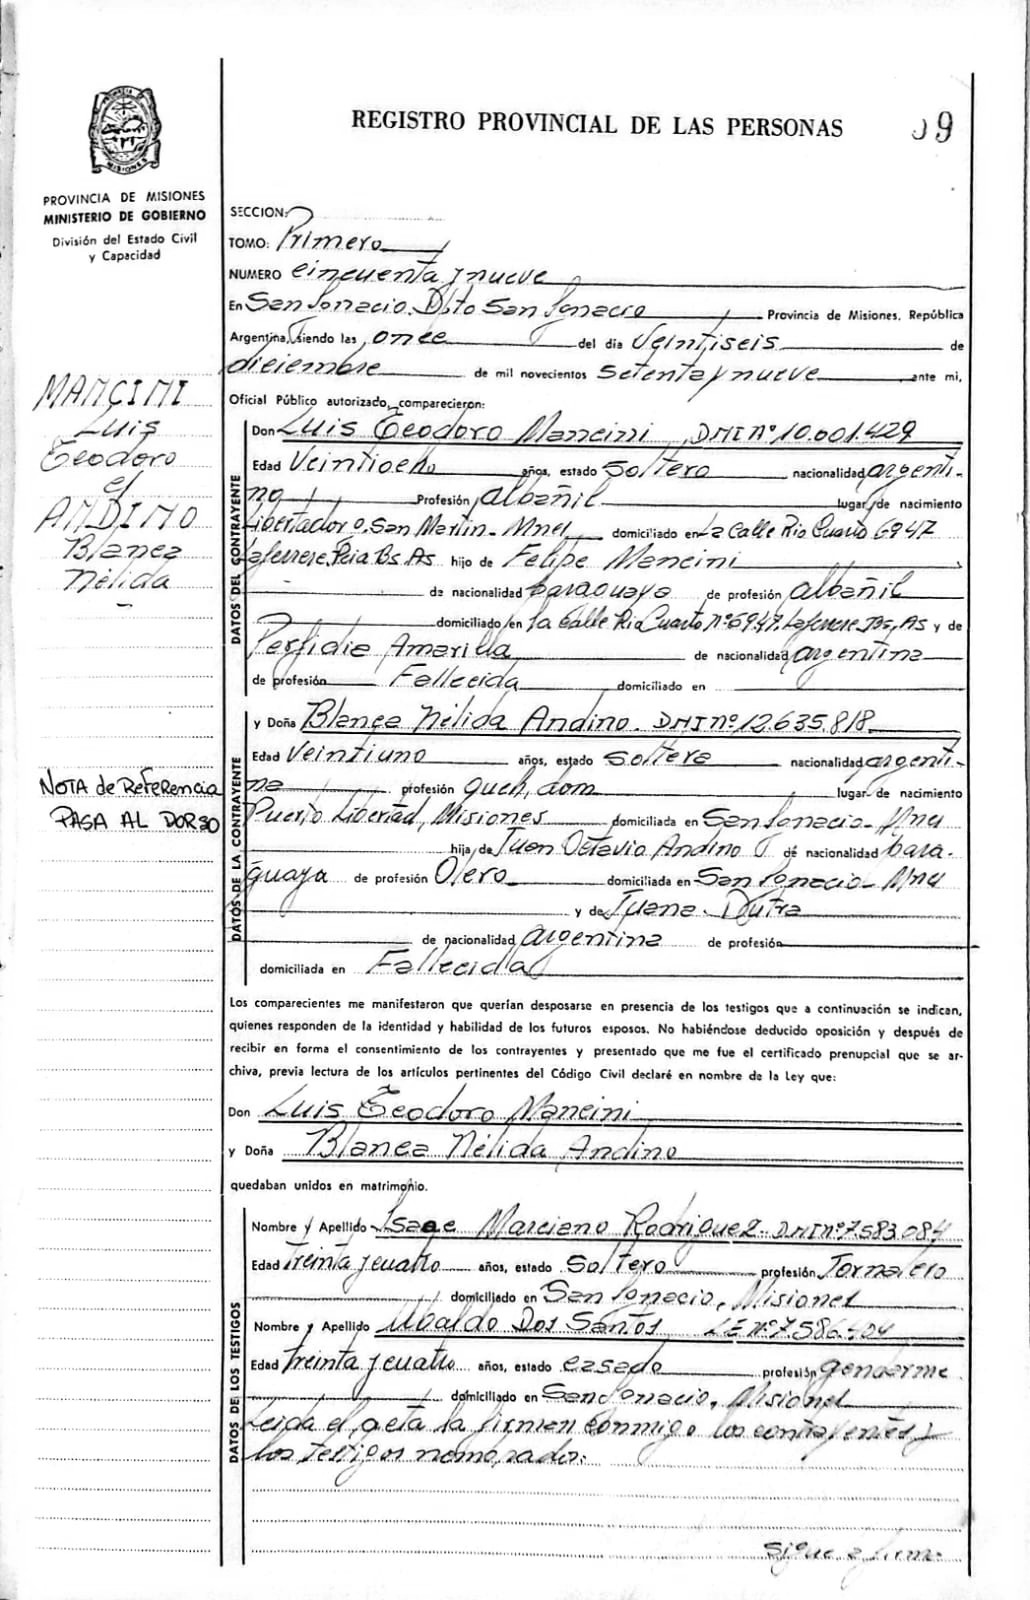 REGISTRO PROVINCIAL DE LAS PERSONAS
09
PROVINCIA DE MISIONES
MINISTERIO DE GOBIERNO
División del Estado Civil
y Capacidad
MANCINI
Luis
Teodoro
c/
ANDINO
Blanca
Nélida
NOTA de Referencia
PASA AL DORSO
SECCION:
TOMO: Primero
NUMERO cincuenta y nueve
En San Ignacio. Dpto San Ignacio Provincia de Misiones, República
Argentina, siendo las once del día Veintiseis de
diciembre de mil novecientos setenta y nueve ante mi,
Oficial Público autorizado, comparecieron:
DATOS DEL CONTRAYENTE
Don Luis Teodoro Mancini DNI Nº 10.001.429
Edad Veintiocho años, estado Soltero nacionalidad argenti-
no Profesión albañil lugar de nacimiento
Libertador G. San Martin - Mnes domiciliado en La Calle Rio Cuarto 6947
Laferrere. Pcia Bs. As hijo de Felipe Mancini
de nacionalidad paraguaya de profesión albañil
domiciliado en la Calle Rio Cuarto Nº 6947. Laferrere Bs, As y de
Perfidia Amarilla de nacionalidad argentina
de profesión Fallecida domiciliado en
DATOS DE LA CONTRAYENTE
y Doña Blanca Nélida Andino. DNI nº 12.635.818
Edad Veintiuno años, estado soltera nacionalidad argenti-
na profesión queh, dom lugar de nacimiento
Puerto Libertad, Misiones domiciliada en San Ignacio - Mnes
hija de Juan Octavio Andino de nacionalidad para-
guaya de profesión Olero domiciliada en San Ignacio - Mnes
y de Juana Dutra
de nacionalidad argentina de profesión
domiciliada en Fallecida
Los comparecientes me manifestaron que querían desposarse en presencia de los testigos que a continuación se indican,
quienes responden de la identidad y habilidad de los futuros esposos. No habiéndose deducido oposición y después de
recibir en forma el consentimiento de los contrayentes y presentado que me fue el certificado prenupcial que se ar-
chiva, previa lectura de los artículos pertinentes del Código Civil declaré en nombre de la Ley que:
Don Luis Teodoro Mancini
y Doña Blanca Nélida Andino
quedaban unidos en matrimonio.
DATOS DE LOS TESTIGOS
Nombre y Apellido Isaac Marciano Rodriguez. DNI nº 7.583.084
Edad treinta y cuatro años, estado Soltero profesión Jornalero
domiciliado en San Ignacio, Misiones
Nombre y Apellido Ubaldo Dos Santos LE Nº 7.586.404
Edad treinta y cuatro años, estado casado profesión gendarme
domiciliado en San Ignacio, Misiones
Leida el acta la firman conmigo los contrayentes y
los testigos nombrados:
Sigue a firma